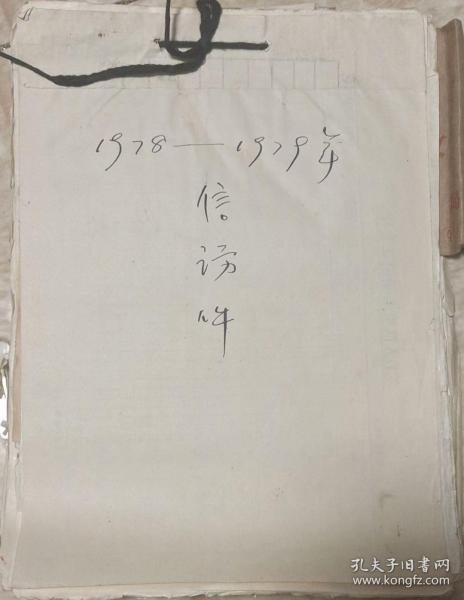 1978——1979年
信
访
件
孔夫子旧书网
www.kongfz.com